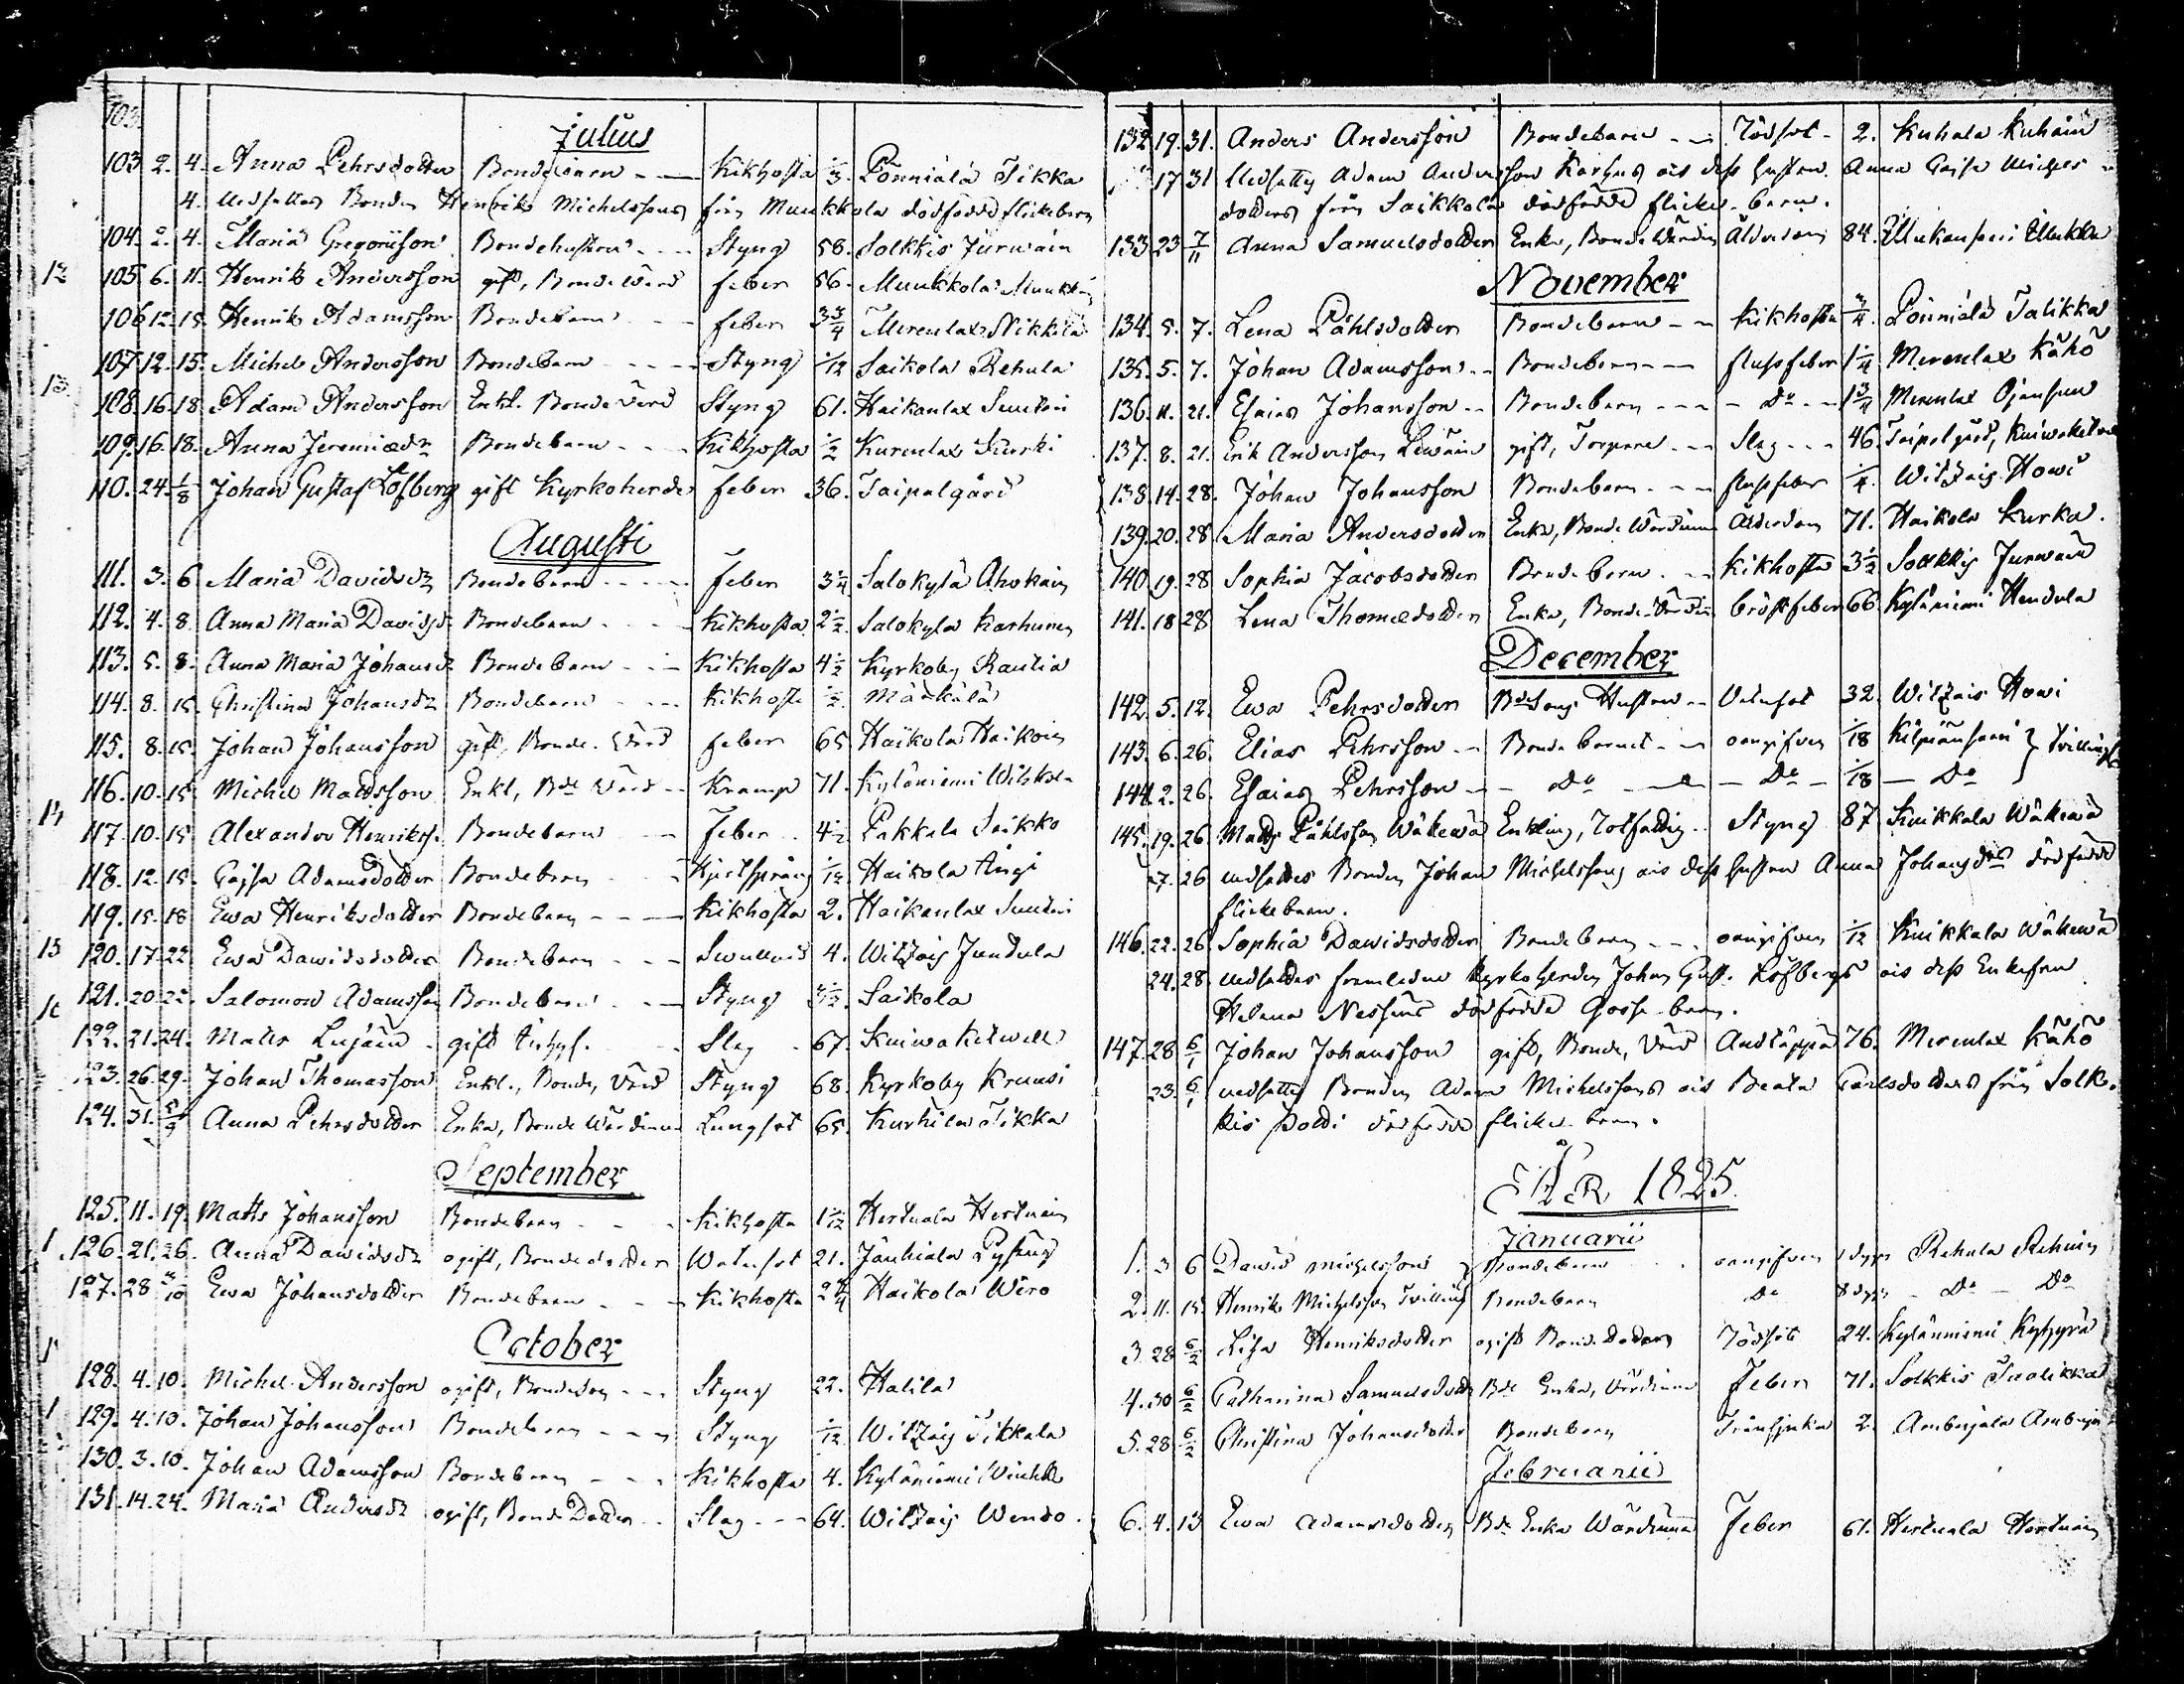 103.
Julius
103. 2. 4. Anna Pehrsdotter Bondebarn Kikhosta 1/3. Pönniälä Tikka
4. nedsattes Bonden Henriks Michelssons från Muukkola dödfödd flickebarn
104. 2. 4. Maria Gregoriison Bondehustru Styng 58. Solkkis Jurwain
12 105 6. 11. Henrik Andersson gift, Bonde Värd feber 56. Muukkola Muukk
106 12. 15. Henrik Adamsson Bondebarn feber 3 3/4 Merenlax Nikkilä
107. 12. 15. Michel Andersson Bondebarn Styng 1/12 Saikola Rehula
13. 108. 16. 18. Adam Andersson Enkl. Bonde Värd Styng 61. Haikanlax Sunteri
109. 16. 18. Anna Jeremiædr Bondebarn Kikhosta 1/2 Kurenlax Kurki
110. 24. 1/8 Johan Gustaf Löfberg gift Kyrkoherde feber 36. Taipalgård
Augusti
111. 3. 6 Maria Davidsdr Bondebarn Feber 3 1/4 Salokylä Ahokain
112. 4. 8. Anna Maria Davidsd Bondebarn Kikhosta 2 1/2. Salokyla Karhunen
113. 5. 8. Anna Maria Johansdr Bondebarn Kikhosta 4 1/2 Kyrkoby Rautia
114. 8. 15. Christina Johansdr Bondebarn Kikhosta 1/2. Määkälä
115. 8. 15. Johan Johansson gift, Bonde Värd feber 65 Haikola Haikoin
116. 10. 15 Michel Mattsson Enkl, Bde Värd Kramp 71. Kyläniemi
14 117. 10. 15 Alexander Henriks. Bondebarn Feber 4 1/2 Pakkala Saikko
118. 12. 15. Cajsa Adamsdotter Bondebarn 1/12 Haikola Äigi
119. 15. 18 Ewa Henriksdotter Bondebarn Kikhosta 2. Haikanlax Sunteri
15 120. 17. 22 Ewa Dawidsdotter Bondebarn Swullnad 4. Witsais Juntula
121. 20. 22. Salomon Adamsson Bondebarn Styng Saikola
122. 21. 24. Matts gift Slag 67. Kuiwaketwelle
123. 26. 29. Johan Thomasson Enkl., Bonde, Värd Styng 68. Kyrkoby Kruusi
124. 31. 5/9 Anna Pehrsdotter Enka, Bonde Wärdinna Lungsot 65. Kurkila Tikka
September
125. 11. 19. Matts Johansson Bondebarn Kikhosta 1 1/12 Hertuala Hertuain
126. 21. 26. Anna Dawidsdr ogift, Bondedotter Watusot 21. Jäuhiala
127. 28 3/10 Ewa Johansdotter Bondebarn Kikhosta 2 3/4 Haikola Wiro
October
128. 4. 10. Michel Andersson ogift, Bondeson Styng 22. Halila
129. 4. 10. Johan Johansson Bondebarn Styng 1/12 Witsais Tikkala
130. 3. 10. Johan Adamsson Bondebarn Kikhosta 4. Kyläniemi
131. 14. 24. Maria Andersdr ogift, Bonde Dotter Slag 64. Witsais Wendo
132. 19. 31. Anders Andersson Bondebarn Rödsot 2. Kuhala Kuhain
17 31 Nedsattes Adam Andersson Karhus och dess hustru Anna Cajsa Michels
dotters från Saikkola dödfödde flicke-barn.
133 23 7/11 Anna Samuelsdotter Enka, Bonde Wärdin Ålderdom 84.
November
134. 5. 7. Lena Påhlsdotter Bondebarn Kikhosta 3/4. Pönniälä Talikka
135. 5. 7. Johan Adamsson Bondebarn flussfeber 1 1/4 Merenlax Kähö
136. 11. 21. Esaias Johansson Bondebarn Do 1 3/4 Merenlax
137. 8. 21. Erik Andersson gift, Torpare Slag 46. Taipalgård, Kuiwaketwe
138. 14. 28. Johan Johansson Bondebarn flussfeber 1/4. Witsais Howi
139. 20. 28 Maria Andersdotter Enka, Bonde Wärdinna Ålderdom 71. Haikola Kurka.
140. 19. 28 Sophia Jacobsdotter Bondebarn Kikhosta 3 1/2 Solkkis Jurwain
141. 18 28 Lena Thomædotter Enka, Bonde Värdin bröstfeber 66. Kyläniemi Hendula
December
142. 5. 12. Ewa Pehrsdotter Bde Sons Hustru Watusot 32. Witsais Howi
143. 6. 26. Elias Pehrsson Bonde barnet oangifven 1/18 Kilpiänsaari } Tvillingar
144. 2. 26. Esaias Pehrsson Do Do 1/18 Do
145. 19. 26 Matts Påhlsson Wäkewä Enkling, Rotfattig Styng 87 Kuikkala Wäkewä
27. 26 nedsattes Bonden Johan Michelssons och dess hustru Anna Johansdrs dödfödde
flickebarn.
146. 22. 26 Sophia Dawidsdotter Bondebarn oangifven 1/12 Kuikkala Wäkewä
24. 28. nedsattes framledne Kyrkoherden Johan Gust. Löfbergs och dess Enkefru
Helena dödfödde Gosse-barn.
147. 28 6/1 Johan Johansson gift, Bonde, Värd Andtäppa 76. Merenlax Kähö
23. 6/1 nedsattes Bonden Adam Michelssons och Beata Carlsdotters från Solk-
kis Poldi dödfödde flicke-barn.
ÅR 1825
Januarii
1. 3 6 David Michelsson } Bondebarn oangifven Rehula Rehuin
2. 11. 15. Henrik Michelsson Tvilling Bondebarn Do 8 dygn Do Do
3. 28 6/2 Lisa Henriksdotter ogift Bonde Dotter Rödsot 24. Kyläniemi
4. 30 6/2 Catharina Samuelsdotter Bde Enka, Värdinna Feber 71. Solkkis Tuolikka
5. 28. 6/2 Christina Johansdotter Bondebarn Trånsjuka 2. Ambusjala Ambusjai
Februarii
6. 4. 13 Ewa Adamsdotter Bde Enka Wärdinna Feber 61. Hertuala Hertuain